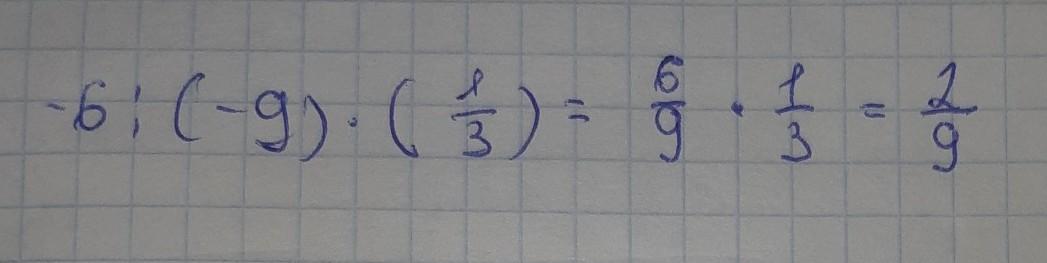 -6 : (-9) · (1/3) = 6/9 · 1/3 = 2/9